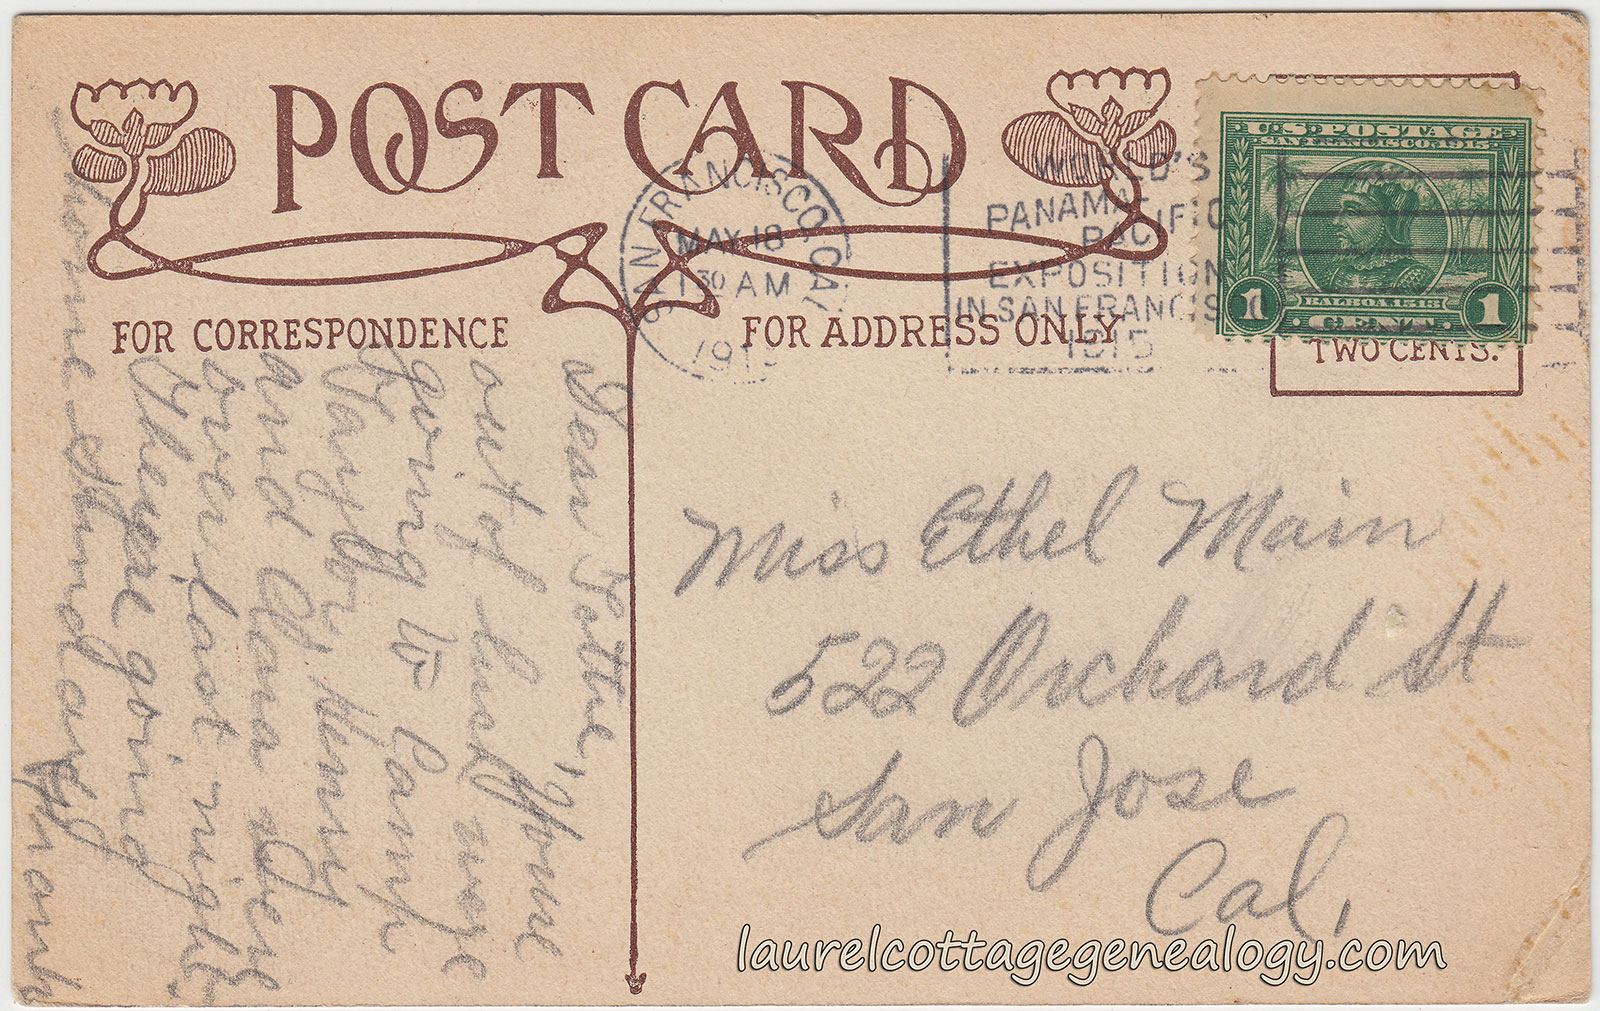 POST CARD
FOR CORRESPONDENCE
FOR ADDRESS ONLY
SAN FRANCISCO, CAL
MAY 18
1 30 AM
191
WORLD'S
PANAMA
PACIFIC
EXPOSITION
IN SAN FRANCIS
1915
U.S. POSTAGE
SAN FRANCISCO 1915
BALBOA 1513
1 1
TWO CENTS.
Dear Tottie, Youre
out of luck were
going to Camp
Taylor, Henry
and Clara were
over last night
Theyre going
home Sunday
Frank
Miss Ethel Main
522 Orchard St
San Jose
Cal,
laurelcottagegenealogy.com